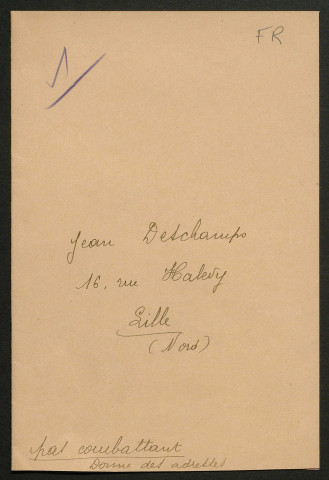 FR
Jean Deschamps
16, rue Halévy
Lille
(Nord)
pas combattant
Donne des adresses